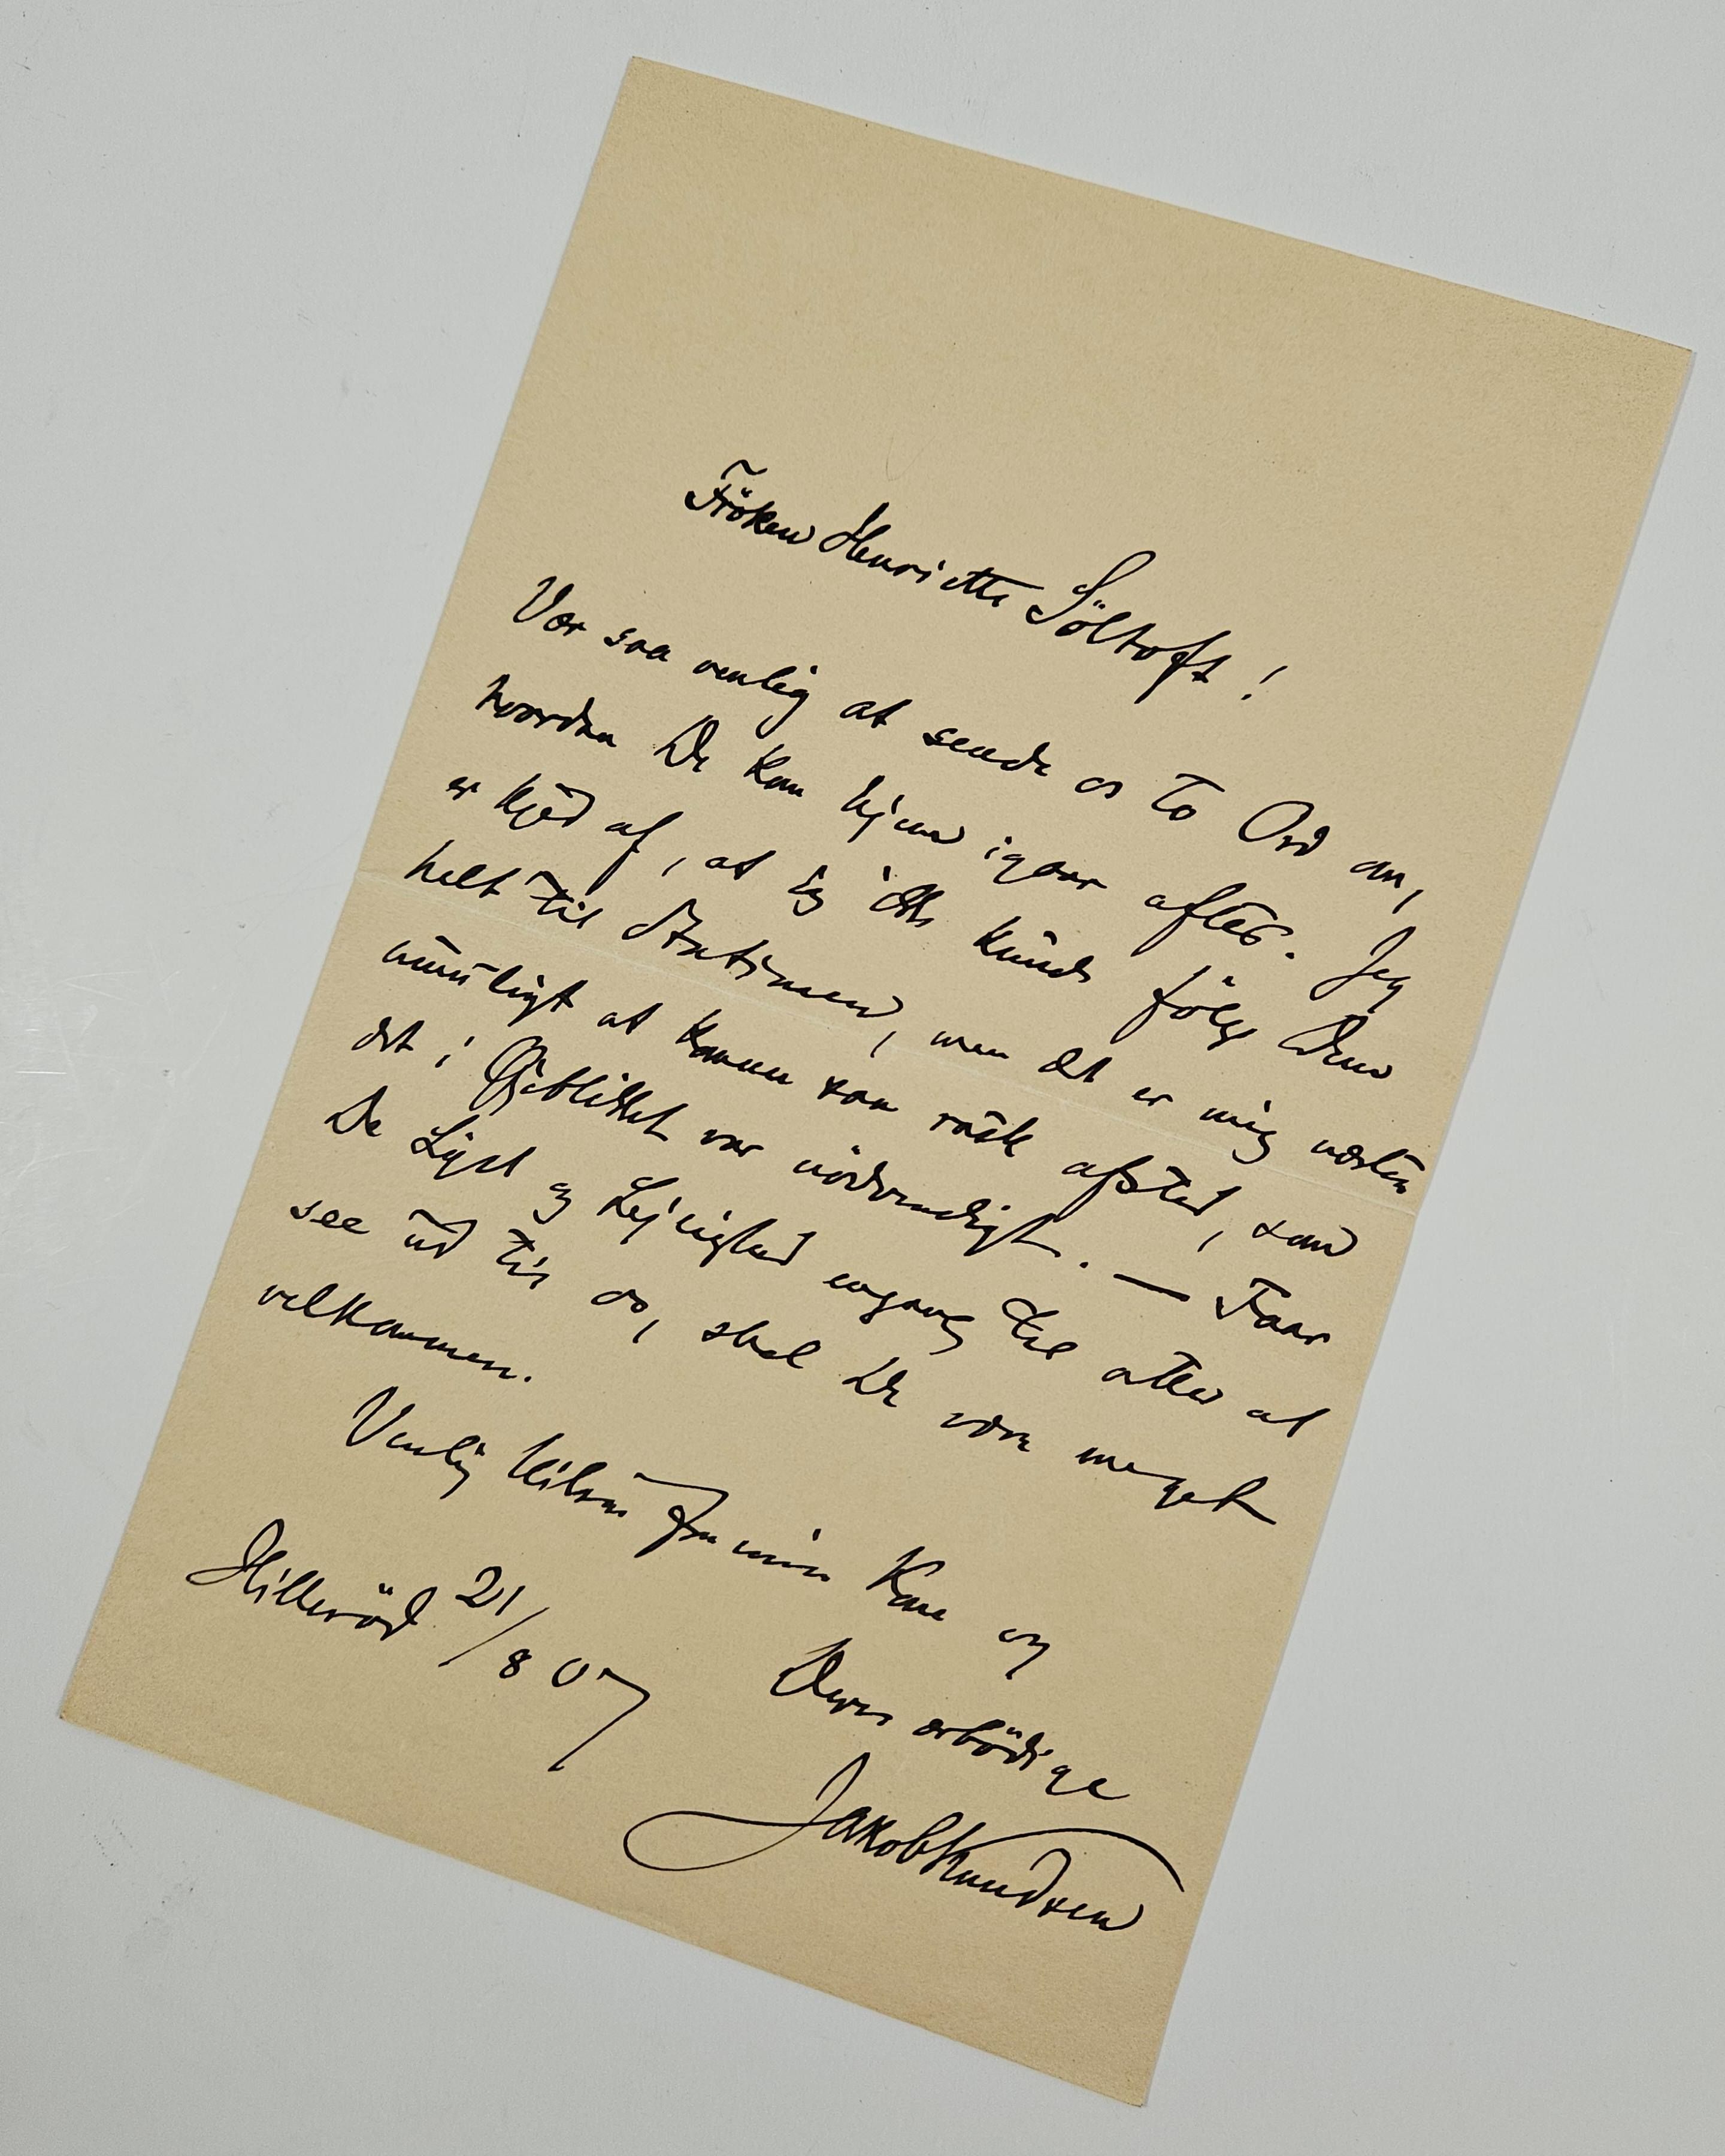 Fröken Henriette Söltoft!
Vær saa venlig at sende os to Ord om,
hvordan De kom hjem igaar aftes. Jeg
er kjed af, at jeg ikke kunde fölge Dem
helt til Stationen, men det er mig næsten
umuligt at komme saa rask afsted, som
det i Øjeblikket var nödvendigt. — Faar
De Lyst og Lejlighed engang til atter at
see ud til os, skal De være meget
velkommen.
Venlig Hilsen fra min Kone og
Deres ærbödige
Jakob Knudsen
Hilleröd 21/8 07